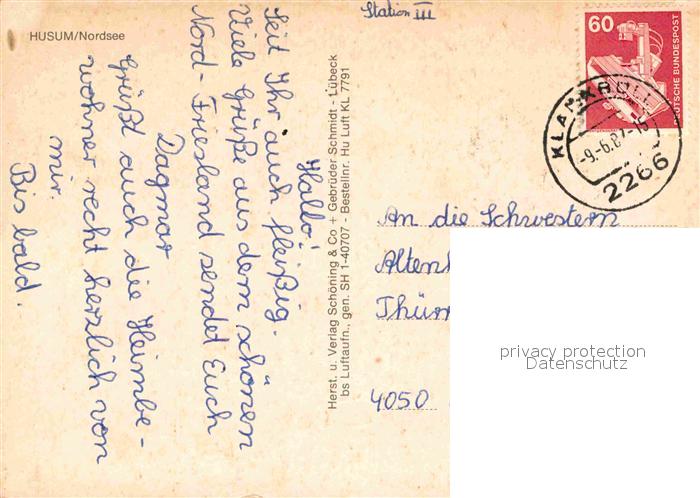 HUSUM/Nordsee
Station III
60
DEUTSCHE BUNDESPOST
KLANXBÜLL
-9.-6.87-15
2266
Hallo!
Seid Ihr auch fleißig.
Viele Grüße aus dem schönen
Nord-Friesland sendet Euch
Dagmar
Grüßt auch die Heimbe-
wohner recht herzlich von
mir.
Bis bald.
Herst. u. Verlag Schöning & Co + Gebrüder Schmidt - Lübeck
bs Luftaufn., gen. SH 1-40707 - Bestellnr. Hu Luft KL 7791
An die Schwestern
Alten
Thür
4050
privacy protection
Datenschutz